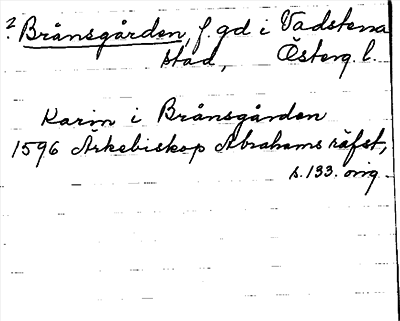 ? Brånsgården, f. gd i Vadstena
stad, Österg. l.
Karin i Brånsgården
1596 Ärkebiskop Abrahams räfst,
s. 133. orig